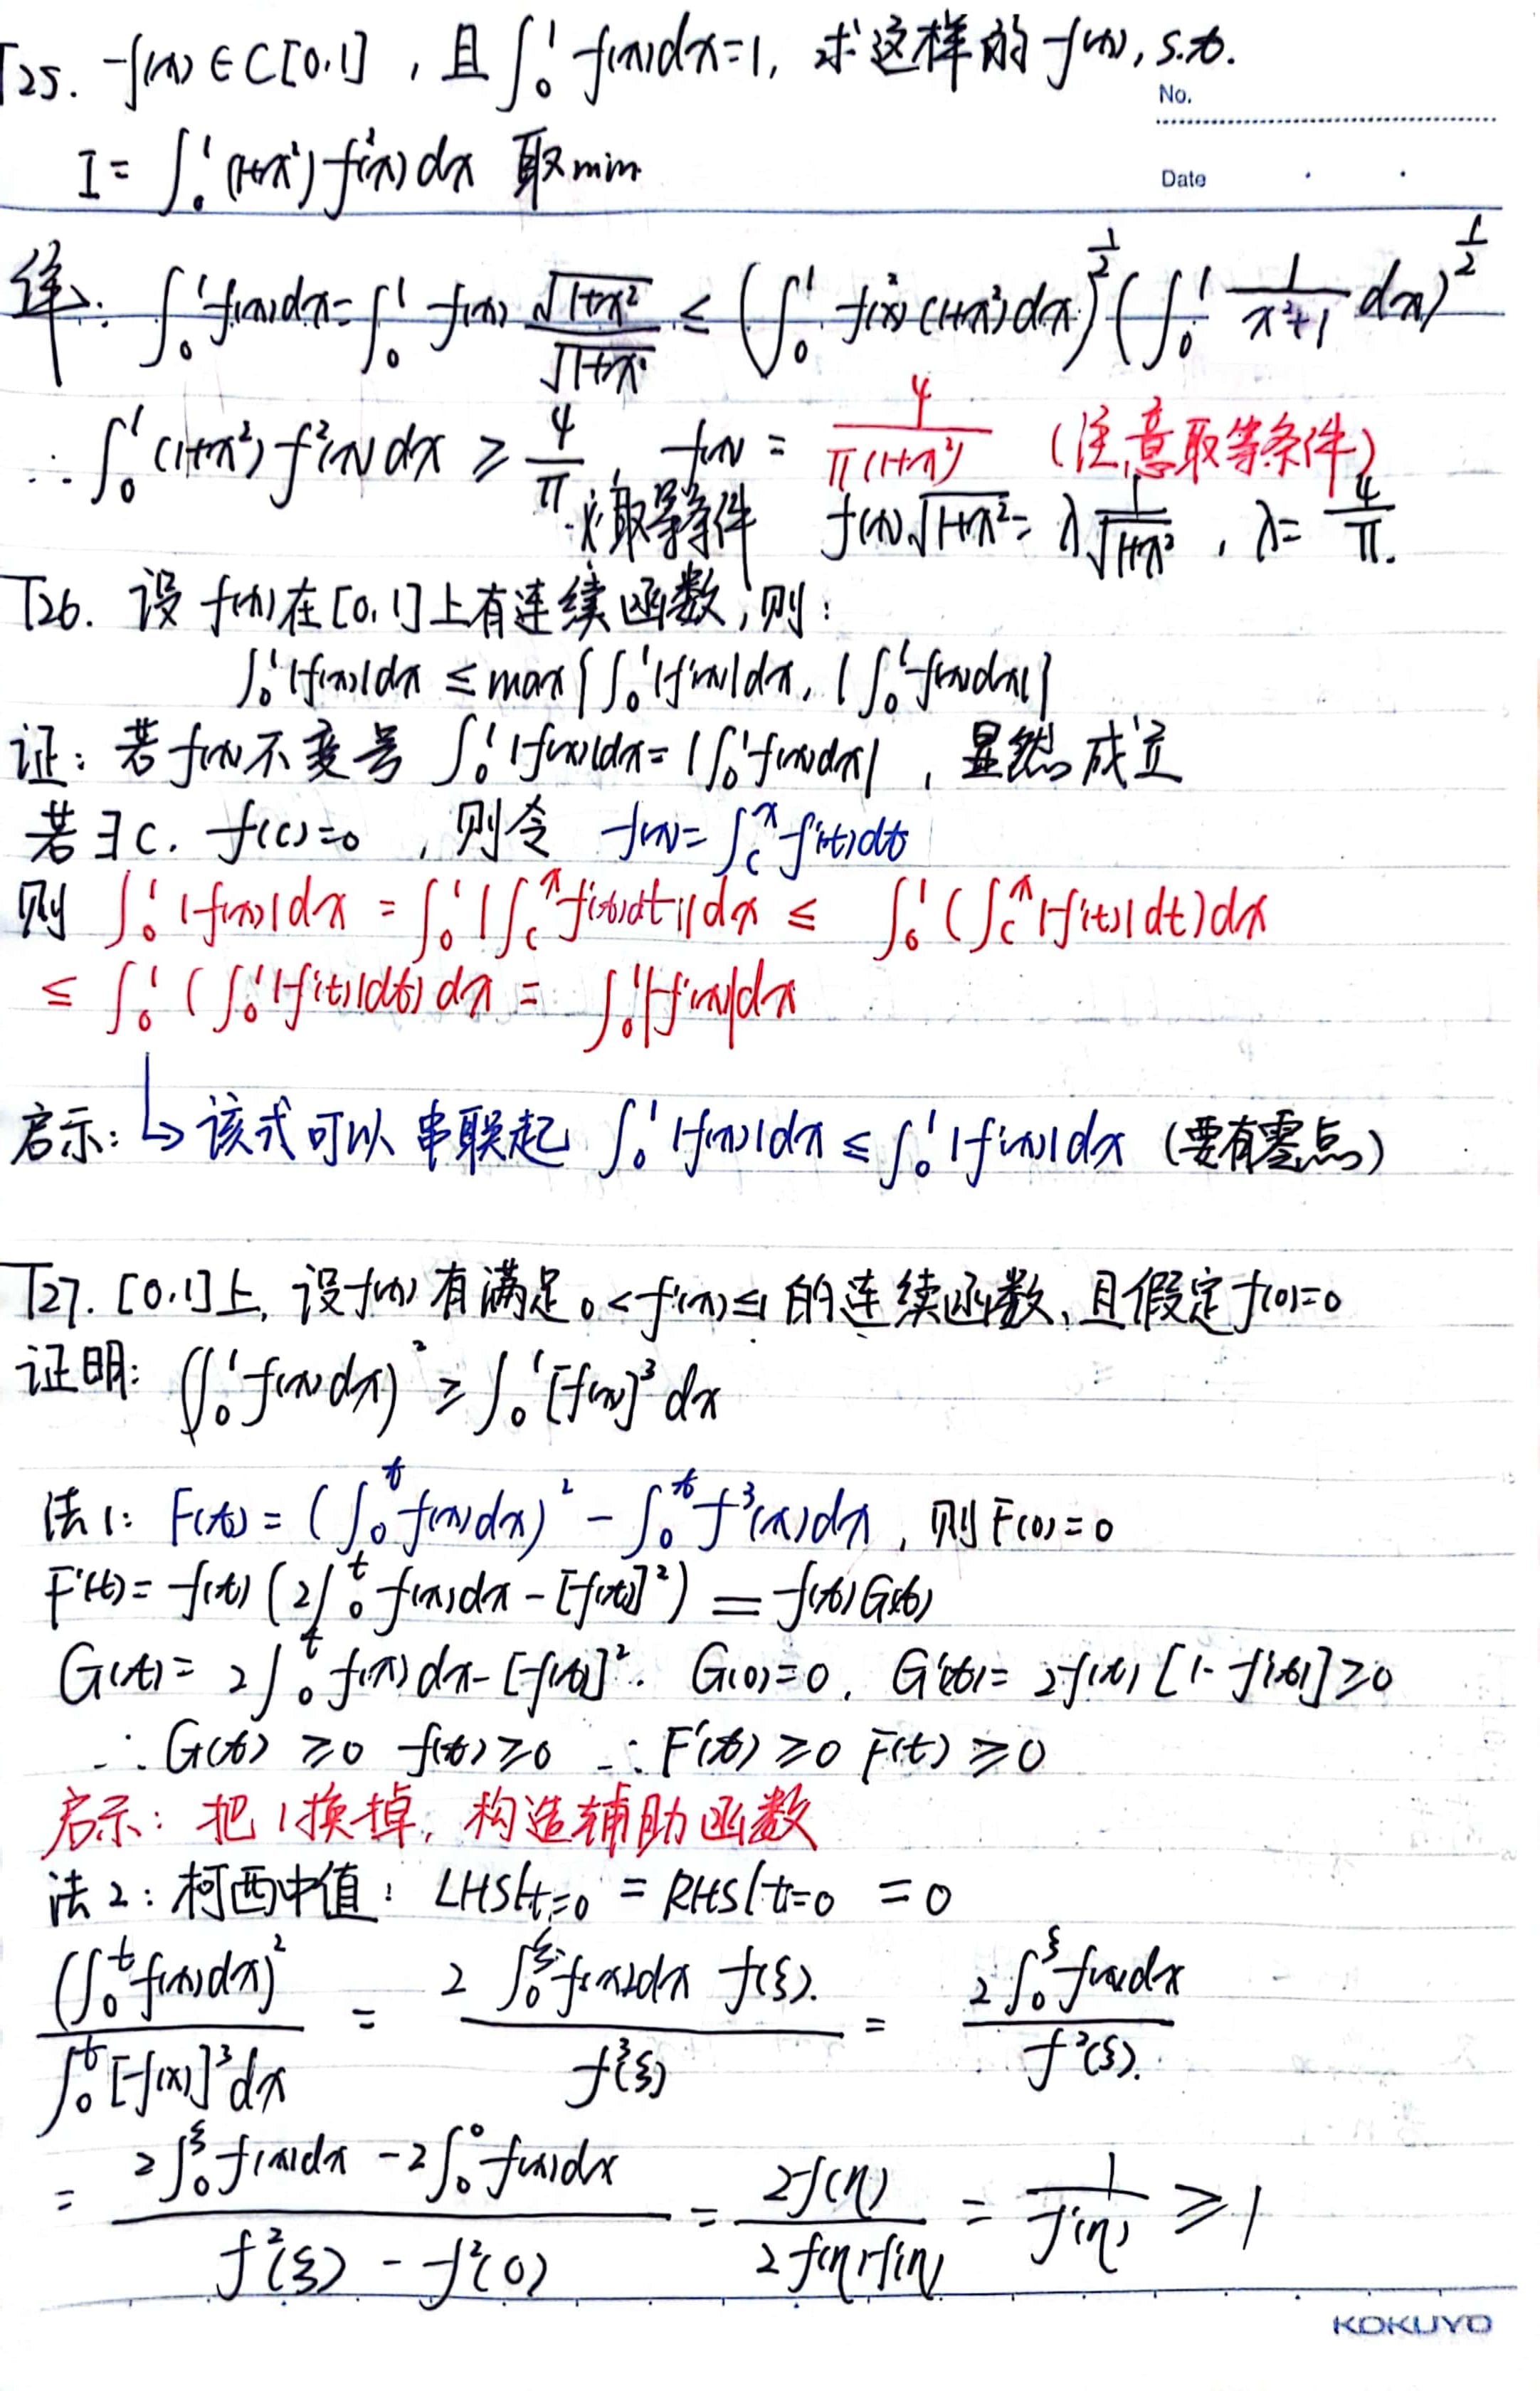 T25. f(x)∈C[0,1]，且∫₀¹f(x)dx=1，求这样的f(x), s.t.
No.
I=∫₀¹(1+x²)f²(x)dx 取min
Date
解：∫₀¹f(x)dx=∫₀¹f(x)\frac{\sqrt{1+x²}}{\sqrt{1+x²}} ≤ (∫₀¹f²(x)(1+x²)dx)^{\frac{1}{2}}(∫₀¹\frac{1}{x²+1}dx)^{\frac{1}{2}}
∴∫₀¹(1+x²)f²(x)dx ≥ \frac{4}{π}，f(x)=\frac{4}{π(1+x²)} (注意取等条件)
取等条件 f(x)\sqrt{1+x²}=λ\frac{1}{\sqrt{1+x²}}，λ=\frac{4}{π}.
T26. 设f(x)在[0,1]上有连续函数，则：
∫₀¹|f(x)|dx ≤ max{∫₀¹|f'(x)|dx, |∫₀¹f(x)dx|}
证：若f(x)不变号 ∫₀¹|f(x)|dx=|∫₀¹f(x)dx|，显然成立
若∃c. f(c)=0，则令 f(x)=∫_c^x f'(t)dt
则 ∫₀¹|f(x)|dx=∫₀¹|∫_c^x f'(t)dt|dx ≤ ∫₀¹(∫_c^x|f'(t)|dt)dx
≤ ∫₀¹(∫₀¹|f'(t)|dt)dx = ∫₀¹|f'(x)|dx
启示：↳该式可以串联起 ∫₀¹|f(x)|dx ≤ ∫₀¹|f'(x)|dx (要有零点)
T27. [0,1]上，设f(x)有满足0<f'(x)≤1的连续函数，且假定f(0)=0
证明：(∫₀¹f(x)dx)² ≥ ∫₀¹[f(x)]³dx
法1：F(t)=(∫₀ᵗf(x)dx)²-∫₀ᵗf³(x)dx，则F(0)=0
F'(t)=f(t)(2∫₀ᵗf(x)dx-[f(t)]²)=f(t)G(t)
G(t)=2∫₀ᵗf(x)dx-[f(t)]². G(0)=0, G'(t)=2f(t)[1-f'(t)]≥0
∴G(t)≥0 f(t)≥0 ∴F'(t)≥0 F(t)≥0
启示：把1换掉，构造辅助函数
法2：柯西中值：LHS|t=0 = RHS|t=0 = 0
\frac{(∫₀ᵗf(x)dx)²}{∫₀ᵗ[f(x)]³dx} = \frac{2∫₀^ξ f(x)dx f(ξ).}{f³(ξ)} = \frac{2∫₀^ξ f(x)dx}{f²(ξ).}
= \frac{2∫₀^ξ f(x)dx-2∫₀⁰f(x)dx}{f²(ξ)-f²(0)} = \frac{2f(η)}{2f(η)f'(η)} = \frac{1}{f'(η)} ≥ 1
KOKUYO